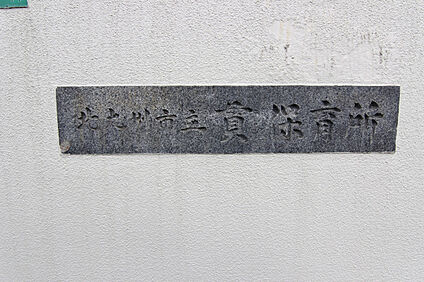 北九州市立貫保育所